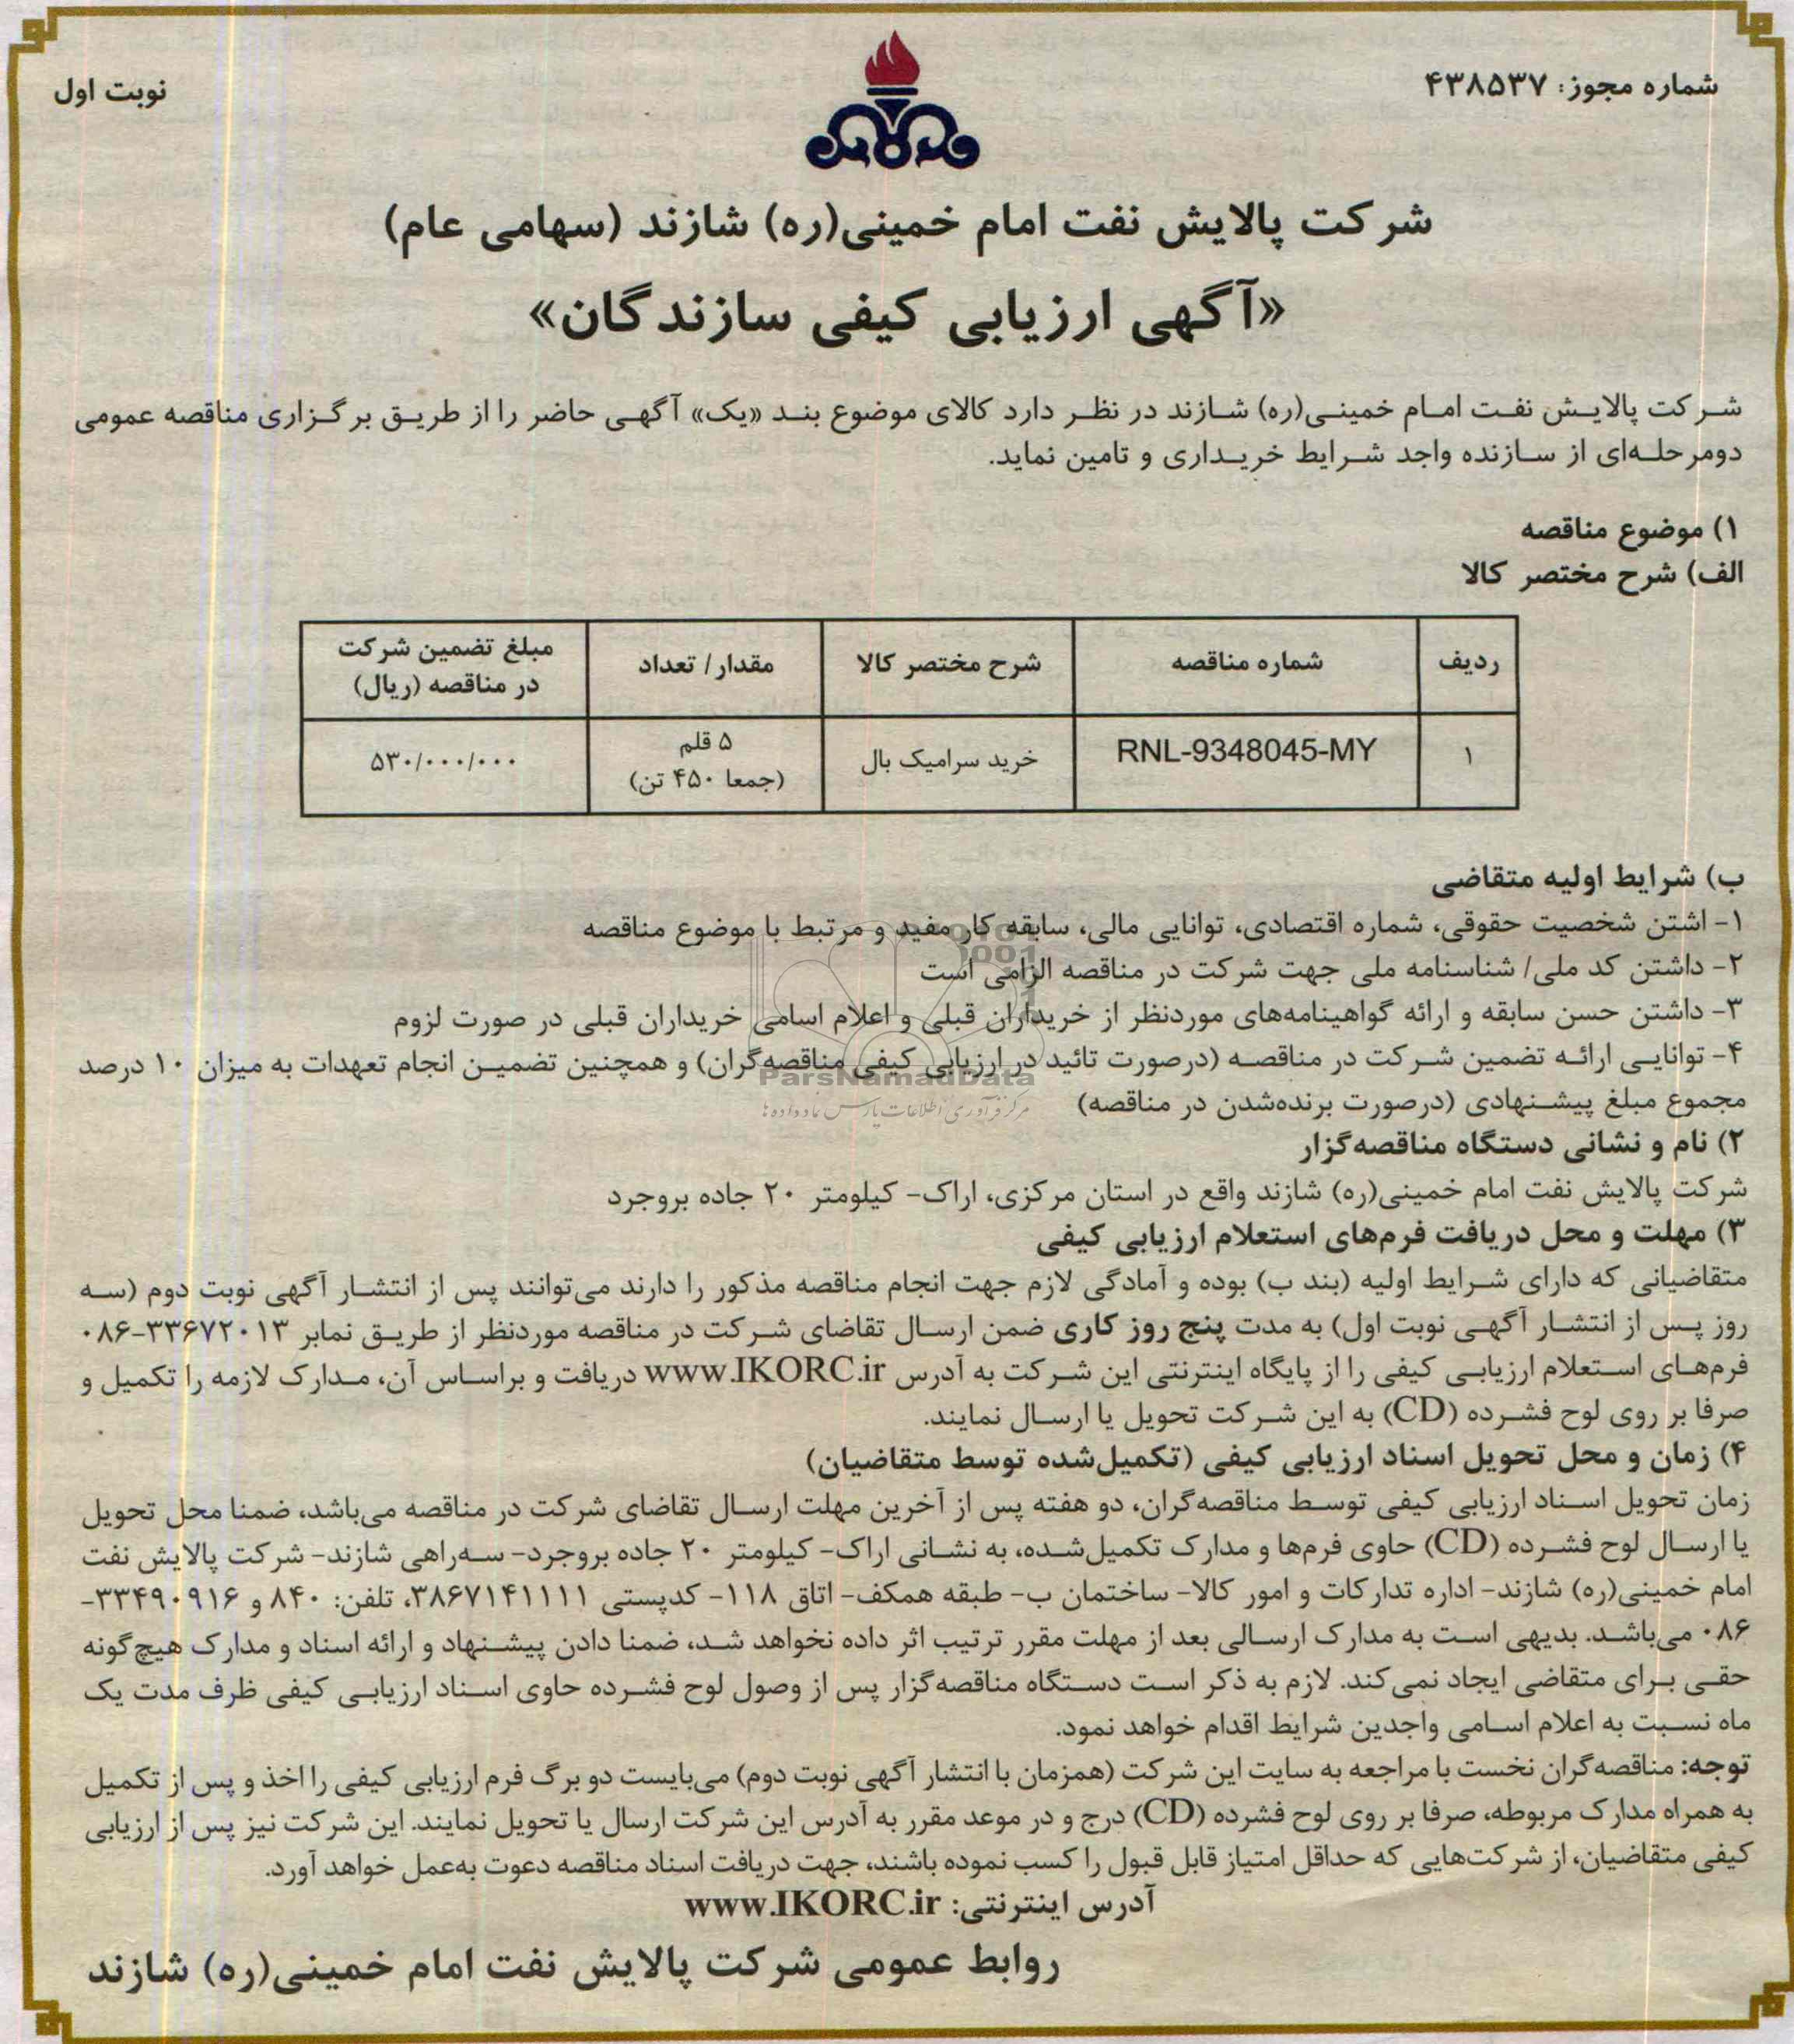 شماره مجوز: ۴۳۸۵۳۷
نوبت اول
شرکت پالایش نفت امام خمینی(ره) شازند (سهامی عام)
«آگهی ارزیابی کیفی سازندگان»
شرکت پالایش نفت امام خمینی(ره) شازند در نظر دارد کالای موضوع بند «یک» آگهی حاضر را از طریق برگزاری مناقصه عمومی
دومرحله‌ای از سازنده واجد شرایط خریداری و تامین نماید.
۱) موضوع مناقصه
الف) شرح مختصر کالا
ردیف شماره مناقصه شرح مختصر کالا مقدار/ تعداد مبلغ تضمین شرکت
در مناقصه (ریال)
۱ RNL-9348045-MY خرید سرامیک بال ۵ قلم
(جمعا ۴۵۰ تن) ۵۳۰/۰۰۰/۰۰۰
ب) شرایط اولیه متقاضی
۱- اشتن شخصیت حقوقی، شماره اقتصادی، توانایی مالی، سابقه کار مفید و مرتبط با موضوع مناقصه
۲- داشتن کد ملی/ شناسنامه ملی جهت شرکت در مناقصه الزامی است
۳- داشتن حسن سابقه و ارائه گواهینامه‌های موردنظر از خریداران قبلی و اعلام اسامی خریداران قبلی در صورت لزوم
۴- توانایی ارائه تضمین شرکت در مناقصه (درصورت تائید در ارزیابی کیفی مناقصه‌گران) و همچنین تضمین انجام تعهدات به میزان ۱۰ درصد
مجموع مبلغ پیشنهادی (درصورت برنده‌شدن در مناقصه)
ParsNamadData
مرکز فرآوری اطلاعات پارس نماد داده ها
۲) نام و نشانی دستگاه مناقصه‌گزار
شرکت پالایش نفت امام خمینی(ره) شازند واقع در استان مرکزی، اراک- کیلومتر ۲۰ جاده بروجرد
۳) مهلت و محل دریافت فرم‌های استعلام ارزیابی کیفی
متقاضیانی که دارای شرایط اولیه (بند ب) بوده و آمادگی لازم جهت انجام مناقصه مذکور را دارند می‌توانند پس از انتشار آگهی نوبت دوم (سه
روز پس از انتشار آگهی نوبت اول) به مدت پنج روز کاری ضمن ارسال تقاضای شرکت در مناقصه موردنظر از طریق نمابر ۳۳۶۷۲۰۱۳-۰۸۶
فرم‌های استعلام ارزیابی کیفی را از پایگاه اینترنتی این شرکت به آدرس www.IKORC.ir دریافت و براساس آن، مدارک لازمه را تکمیل و
صرفا بر روی لوح فشرده (CD) به این شرکت تحویل یا ارسال نمایند.
۴) زمان و محل تحویل اسناد ارزیابی کیفی (تکمیل‌شده توسط متقاضیان)
زمان تحویل اسناد ارزیابی کیفی توسط مناقصه‌گران، دو هفته پس از آخرین مهلت ارسال تقاضای شرکت در مناقصه می‌باشد، ضمنا محل تحویل
یا ارسال لوح فشرده (CD) حاوی فرم‌ها و مدارک تکمیل‌شده، به نشانی اراک- کیلومتر ۲۰ جاده بروجرد- سه‌راهی شازند- شرکت پالایش نفت
امام خمینی(ره) شازند- اداره تدارکات و امور کالا- ساختمان ب- طبقه همکف- اتاق ۱۱۸- کدپستی ۳۸۶۷۱۴۱۱۱۱، تلفن: ۸۴۰ و ۳۳۴۹۰۹۱۶-
۰۸۶ می‌باشد. بدیهی است به مدارک ارسالی بعد از مهلت مقرر ترتیب اثر داده نخواهد شد، ضمنا دادن پیشنهاد و ارائه اسناد و مدارک هیچ‌گونه
حقی برای متقاضی ایجاد نمی‌کند. لازم به ذکر است دستگاه مناقصه‌گزار پس از وصول لوح فشرده حاوی اسناد ارزیابی کیفی ظرف مدت یک
ماه نسبت به اعلام اسامی واجدین شرایط اقدام خواهد نمود.
توجه: مناقصه‌گران نخست با مراجعه به سایت این شرکت (همزمان با انتشار آگهی نوبت دوم) می‌بایست دو برگ فرم ارزیابی کیفی را اخذ و پس از تکمیل
به همراه مدارک مربوطه، صرفا بر روی لوح فشرده (CD) درج و در موعد مقرر به آدرس این شرکت ارسال یا تحویل نمایند. این شرکت نیز پس از ارزیابی
کیفی متقاضیان، از شرکت‌هایی که حداقل امتیاز قابل قبول را کسب نموده باشند، جهت دریافت اسناد مناقصه دعوت به‌عمل خواهد آورد.
آدرس اینترنتی: www.IKORC.ir
روابط عمومی شرکت پالایش نفت امام خمینی(ره) شازند